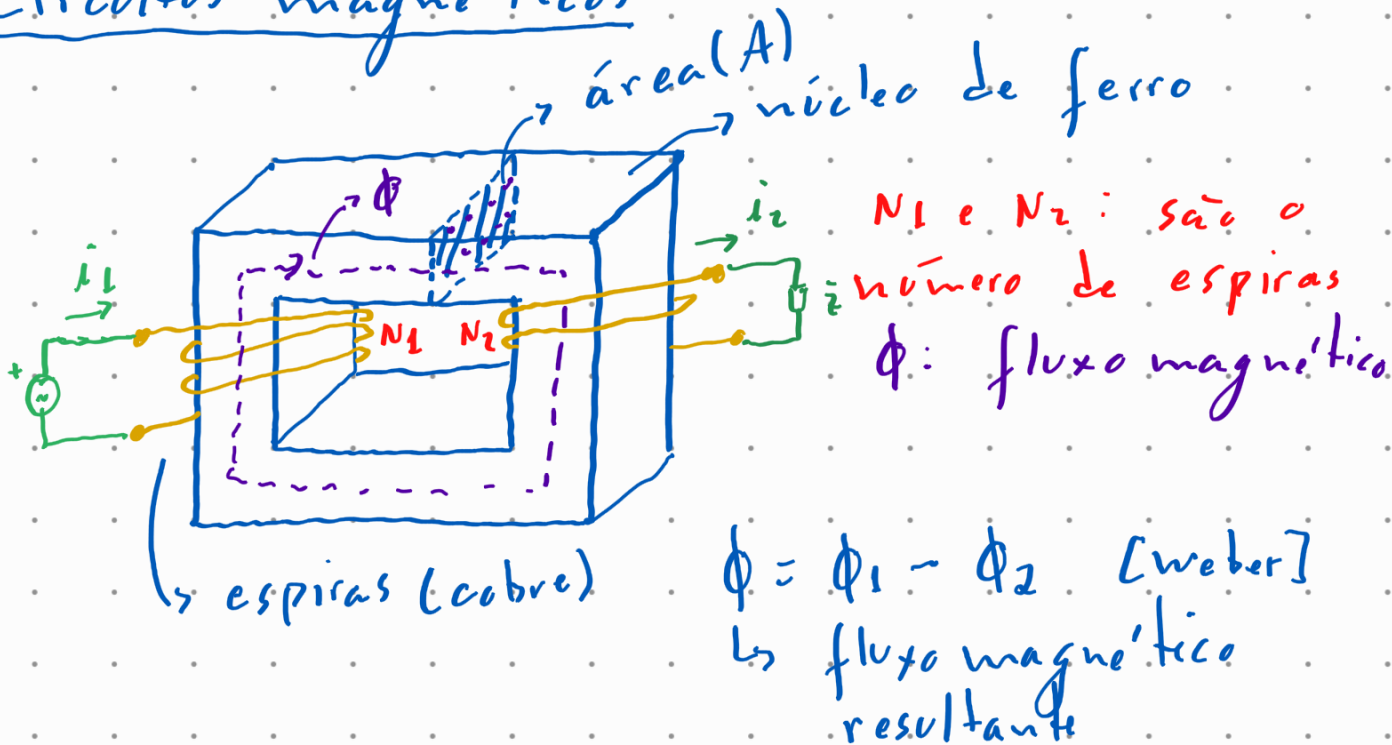 Circuitos magnéticos
área (A)
núcleo de ferro
ϕ
i1
i2
N1 N2
+
~
z
N1 e N2: são o
número de espiras
ϕ: fluxo magnético
espiras (cobre)
ϕ = ϕ1 - ϕ2 [weber]
↳ fluxo magnético
resultante